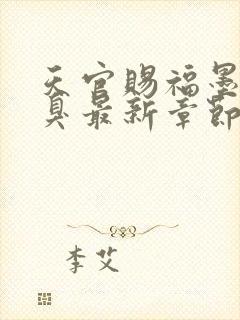 天官赐福墨
臭最新章节
李艾